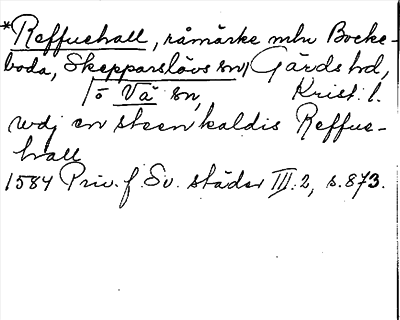 *Reffuehall, råmärke mln Bocke-
boda, Skepparslövs sn, Gärds hd,
o Vä sn, Krist. l.
wdj en steen kaldis Reffue-
hall
1584 Priv. f. Sv. städer III:2, s. 873.